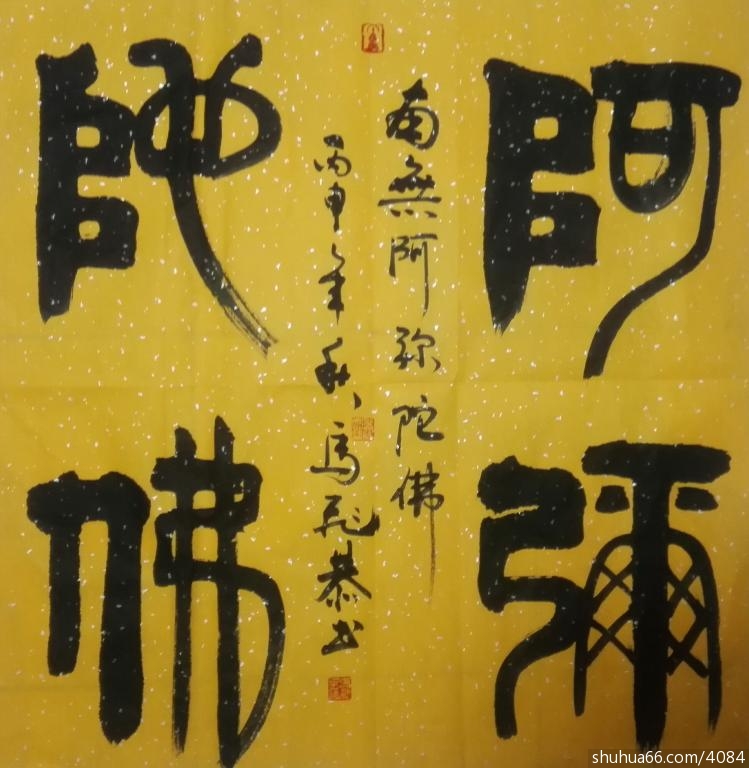 阿彌
陀佛
南無阿弥陀佛
丙申年秋馬飛恭书
shuhua66.com/4084